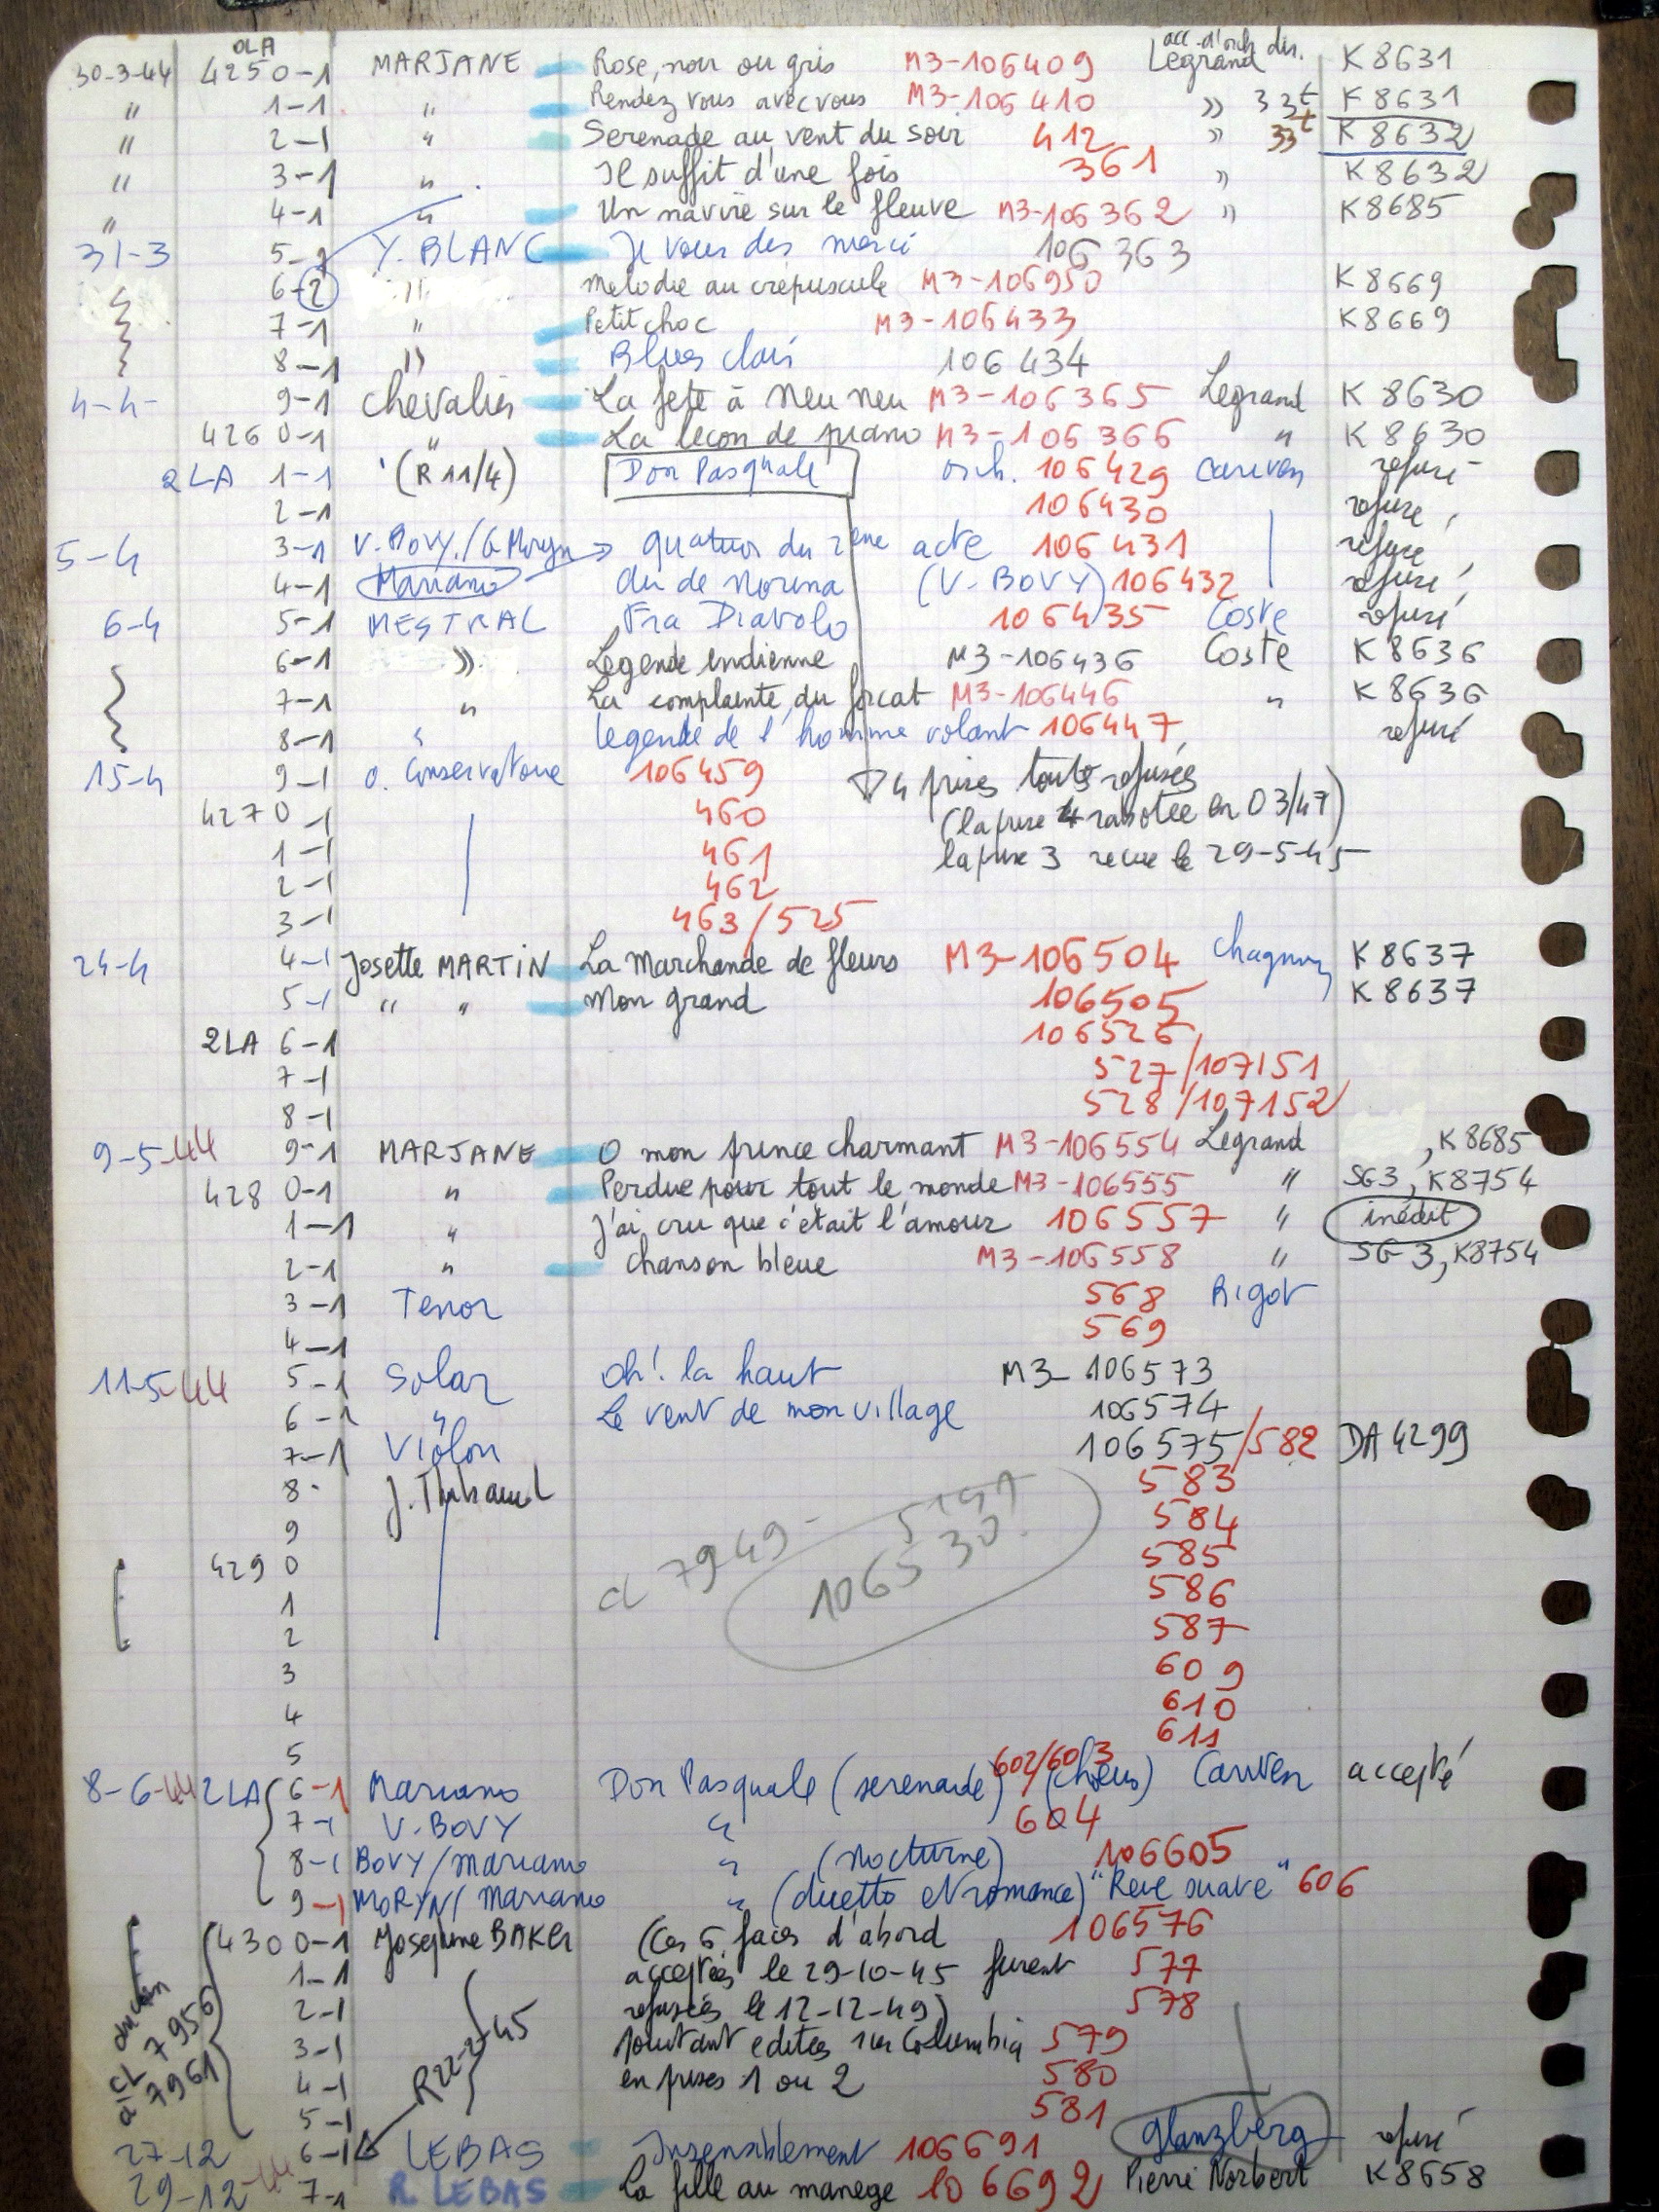 OLA acc. d'orch dir.
30-3-44 4250-1 MARJANE Rose, noir ou gris M3-106409 Legrand K 8631
" 1-1 " Rendez vous avec vous M3-106410 " 33t K 8631
" 2-1 " Serenade au vent du soir 412 " 33t K 8632
" 3-1 " Il suffit d'une fois 361 " K 8632
" 4-1 " Un navire sur le fleuve M3-106362 " K8685
31-3 5- Y. BLANC Je vous dis merci 106363
6-2 " Melodie au crepuscule M3-106950 K 8669
7-1 " Petit choc M3-106433 K 8669
8-1 " Blues clair 106434
4-4- 9-1 Chevalier La fete à Neu neu M3-106365 Legrand K 8630
426 0-1 " La lecon de piano M3-106366 " K 8630
2LA 1-1 (R 11/4) Don Pasquale orch. 106429 Cariven refusé
2-1 106430 refusé
5-4 3-1 V. BOVY./G Moryn quatuor du 2eme acte 106431 refusé
4-1 Mariano de Norina (V. BOVY) 106432 refusé
6-4 5-1 MESTRAL Fra Diavolo 106435 Coste refusé
6-1 " Legende indienne M3-106436 Coste K 8636
7-1 " La complainte du forcat M3-106446 " K 8636
8-1 " legende de l'homme volant 106447 refusé
15-4 9-1 O. Conservatoire 106459 4 prises toutes refusées
4270-1 460 (la prise 4 rabotée en 03/47)
1-1 461 la prise 3 recue le 29-5-45
2-1 462
3-1 463/525
24-4 4-1 Josette MARTIN La Marchande de fleurs M3-106504 Chagnon K 8637
5-1 " " Mon grand 106505 K 8637
2LA 6-1 106526
7-1 527/107151
8-1 528/107152
9-5-44 9-1 MARJANE O mon prince charmant M3-106554 Legrand , K 8685
428 0-1 " Perdue pour tout le monde M3-106555 " SG3, K8754
1-1 " J'ai cru que c'était l'amour 106557 " inédit
2-1 " chanson bleue M3-106558 " SG 3, K8754
3-1 Tenor 568 Rigot
4-1 569
11-5-44 5-1 Solar Oh! la haut M3-106573
6-1 " Le vent de mon village 106574
7-1 Violon 106575/582 DA 4299
8- J. Thibaud 583
9 584
429 0 585
cl 7949- 5151
106530
1 586
2 587
3 609
4 610
5 611
8-6-44 2LA 6-1 Mariano Don Pasquale (serenade) 602/603 (chœurs) Cariven accepté
7-1 V. BOVY " 604
8-1 BOVY/mariano " (nocturne) 106605
9-1 MORYN/Mariano " (duetto et romance) "Reve suave" 606
4300-1 Josephine BAKER (Ces 6 faces d'abord 106576
1-1 acceptées le 29-10-45 furent 577
2-1 refusées le 12-12-49) 578
3-1 pourtant editées sur Columbia 579
4-1 en prises 1 ou 2 580
5-1 581
CL 7956 à 7961
R22-2-45
27-12 6-1 LEBAS Insensiblement 106691 Glanzberg refusé
29-12-44 7-1 R. LEBAS La fille au manege 106692 Pierre Norbert K 8658